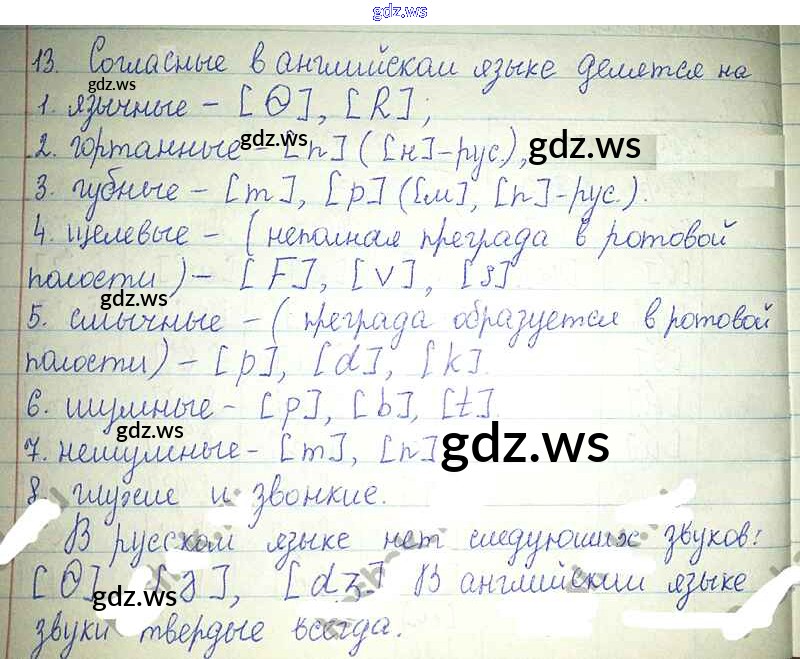 gdz.ws
13. Согласные в английском языке делятся на
gdz.ws
1. язычные – [Θ], [R];
2. гортанные – [h] ([н]-рус.),
gdz.ws gdz.ws
3. губные – [m], [p] ([м], [п]-рус.).
4. щелевые – (неполная преграда в ротовой
полости) – [F], [v], [s].
gdz.ws
5. смычные – (преграда образуется в ротовой
полости) – [p], [d], [k].
6. шумные – [p], [b], [t].
gdz.ws
7. нешумные – [m], [n]
gdz.ws
8. глухие и звонкие.
В русском языке нет следующих звуков:
[Θ], [dз] В английском языке
gdz.ws
звуки твердые всегда.